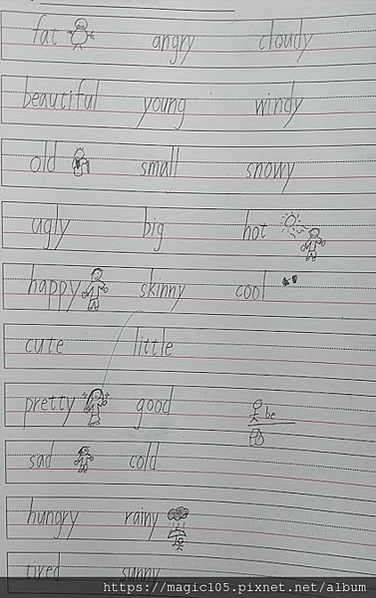 fat angry cloudy
beautiful young windy
old small snowy
ugly big hot
happy skinny cool
cute little
pretty good be
sad cold
hungry rainy
tired sunny
https://magic105.pixnet.net/album